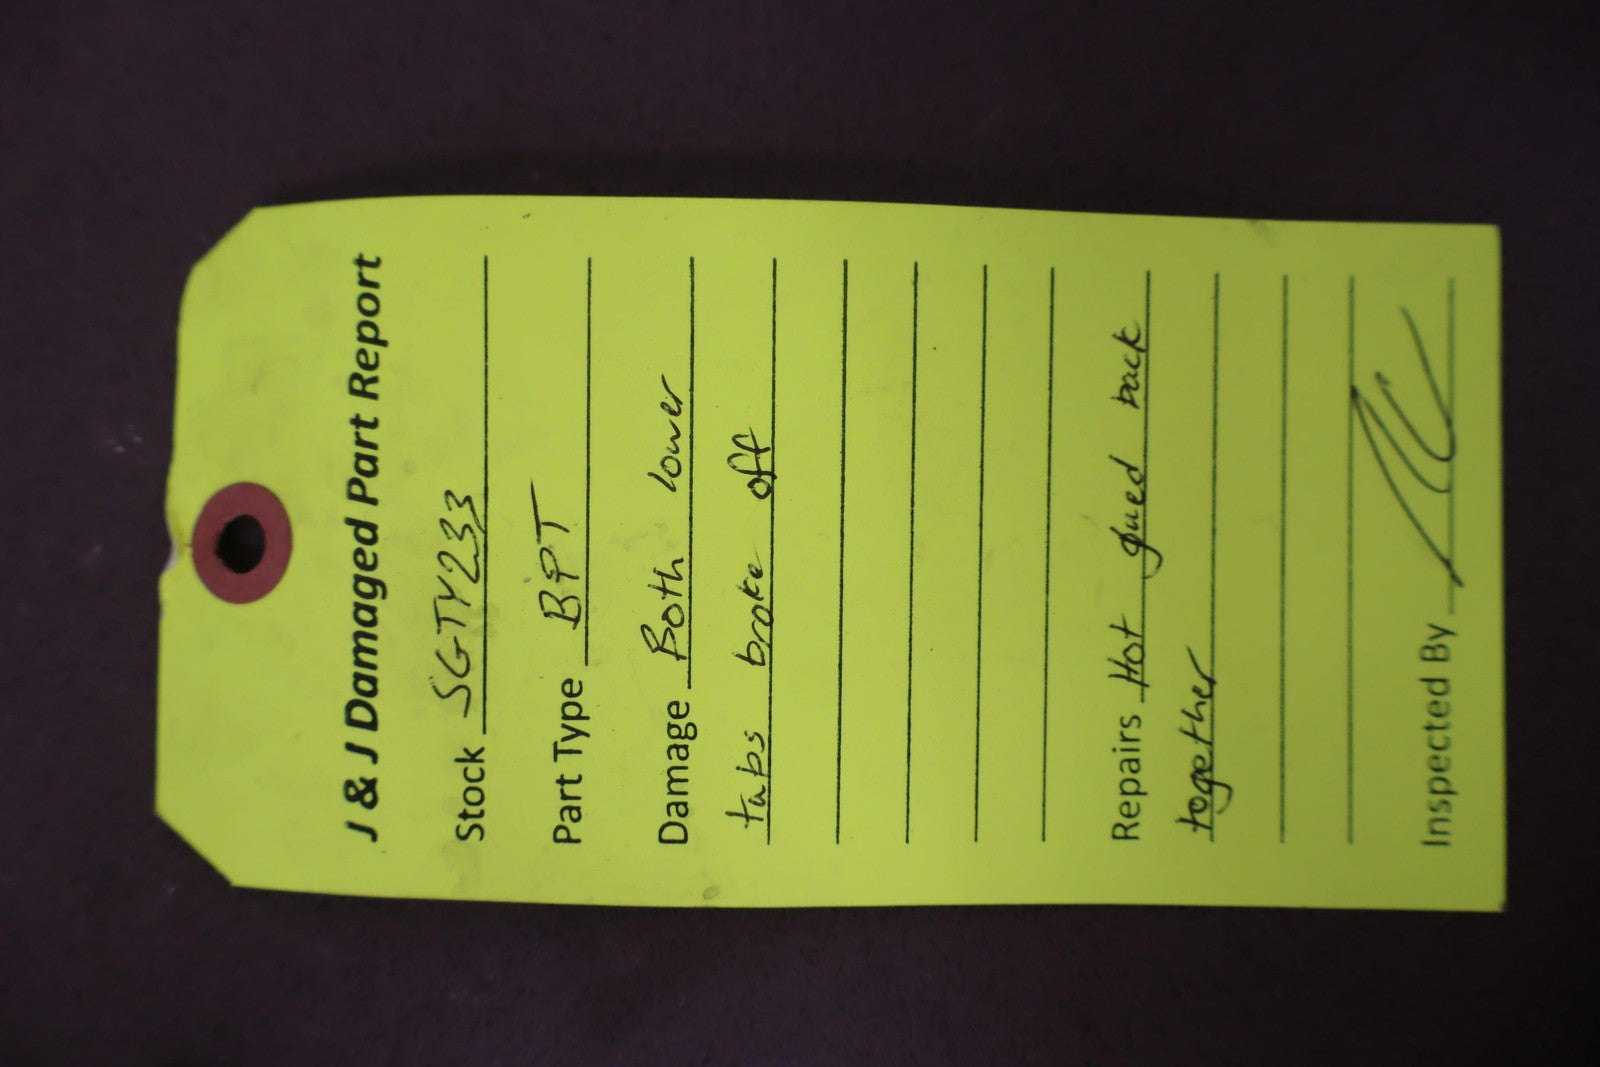 J & J Damaged Part Report
Stock SGTY233
Part Type BPT
Damage Both lower
tabs broke off
Repairs Hot glued back
together
Inspected By